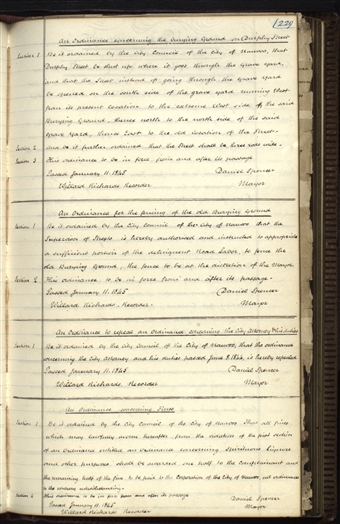 229
An Ordinance concerning the Burying Ground on Durphy Street
Section 1 Be it ordained by the City Council of the City of Nauvoo, that
Durphy Street be shut up where it goes through the Grave Yard,
and that the Street instead of going through the Grave Yard
be opened on the south side of the grave yard running West
from its present location to the extreme West side of the said
Burying Ground, thence north to the north side of the said
Grave Yard, thence East to the old location of the Street.
Section 2 And be it further ordained, that the Street shall be three rods wide.
Section 3 This ordinance to be in force from and after its passage
Passed January 11. 1845 Daniel Spencer
Willard Richards Recorder Mayor
An Ordinance for the fencing of the old Burying Ground
Section 1 Be it ordained by the City Council of the City of Nauvoo that the
Supervisor of Streets is hereby authorized and instructed to appropriate
a sufficient portion of the delinquent Road Labor, to fence the
old Burying Ground, the fence to be at the dictation of the Mayor.
Section 2 This ordinance to be in force from and after its passage
Passed January 11. 1845 Daniel Spencer
Willard Richards, Recorder. Mayor
An Ordinance to repeal an Ordinance concerning the City Attorney & his duties
Section 1 Be it ordained by the City Council of the City of Nauvoo, that the ordinance
concerning the City Attorney and his duties passed June 8. 1844, is hereby repealed
Passed January 11. 1845 Daniel Spencer
Willard Richards, Recorder Mayor
An Ordinance concerning Fines
Section 1 Be it ordained by the City Council of the City of Nauvoo That all fines
which may lawfully accrue hereafter, from the violation of the first section
of an Ordinance entitled an Ordinance concerning Spirituous Liquors
and other purposes shall be awarded one half to the complainant and
the remaining half of the fine to be paid to the Corporation of the City of Nauvoo, all ordinances
to the contrary notwithstanding.
Section 2 This ordinance to be in force from and after its passage
Passed January 11. 1845 Daniel Spencer
Willard Richards Recorder Mayor